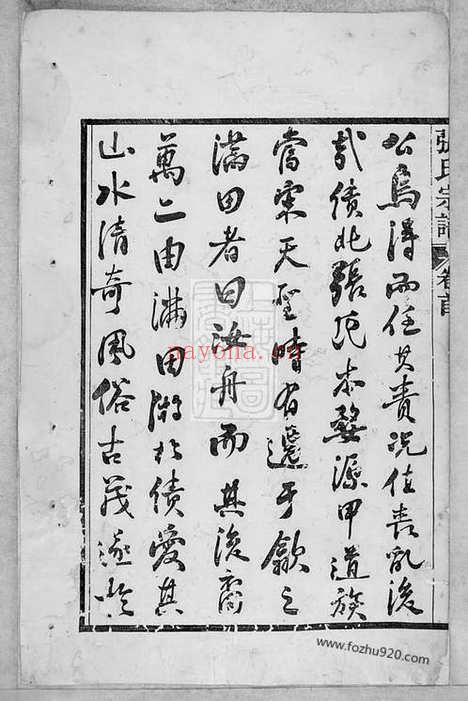 張氏宗譜
卷首
公烏得而任其責況值喪亂後
哉績北張氏本婺源甲道族
當宋天聖時有遷于歙之
滿田者曰汝舟而其後裔
萬二由滿田游於績愛其
山水清奇風俗古茂遂
nayona.cn
www.fozhu920.com